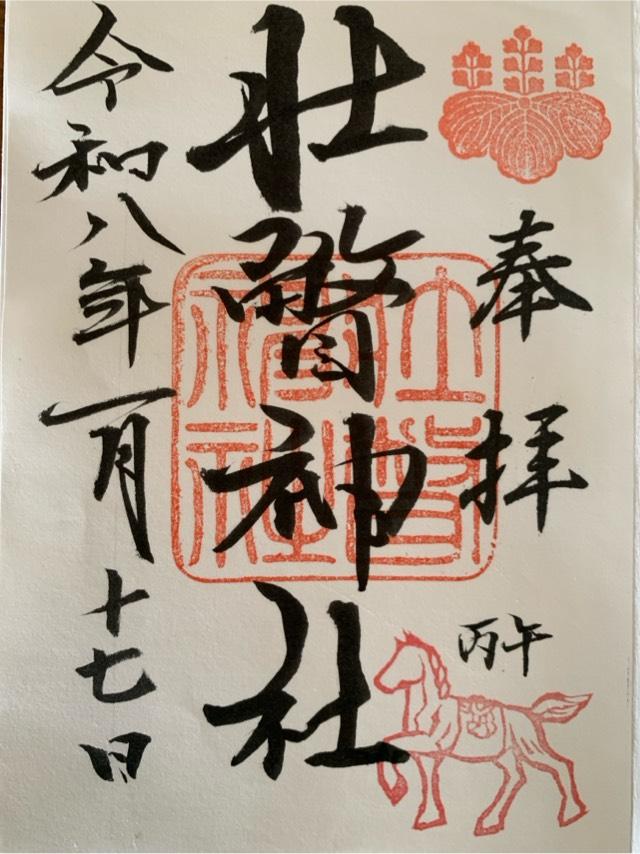 奉拝
丙午
壮瞥神社
令和八年一月十七日